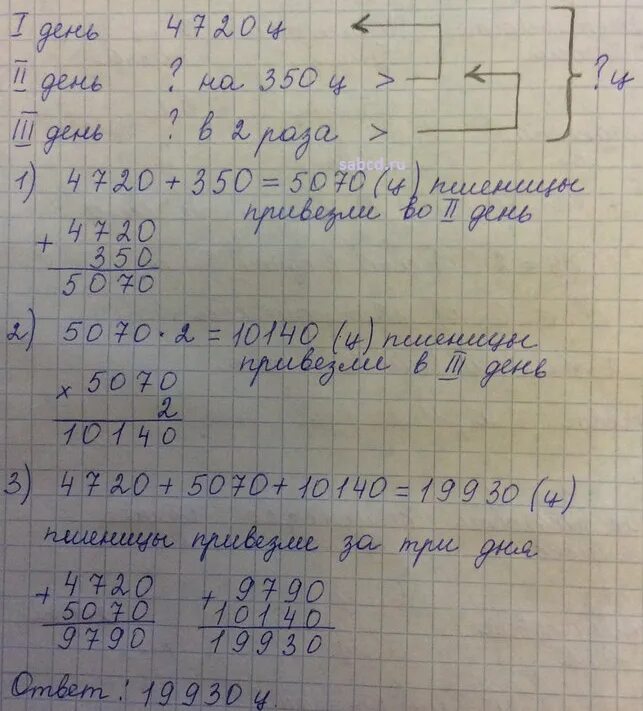 I день 4720ц
II день ? на 350 ц > ? ц
III день ? в 2 раза >
sabcd.ru
1) 4720 + 350 = 5070 (ц) пшеницы
привезли во II день
+ 4720
350
5070
2) 5070 · 2 = 10140 (ц) пшеницы
привезли в III день
× 5070
2
10140
3) 4720 + 5070 + 10140 = 19930 (ц)
пшеницы привезли за три дня
+ 4720 + 9790
5070 10140
9790 19930
Ответ: 19930 ц.